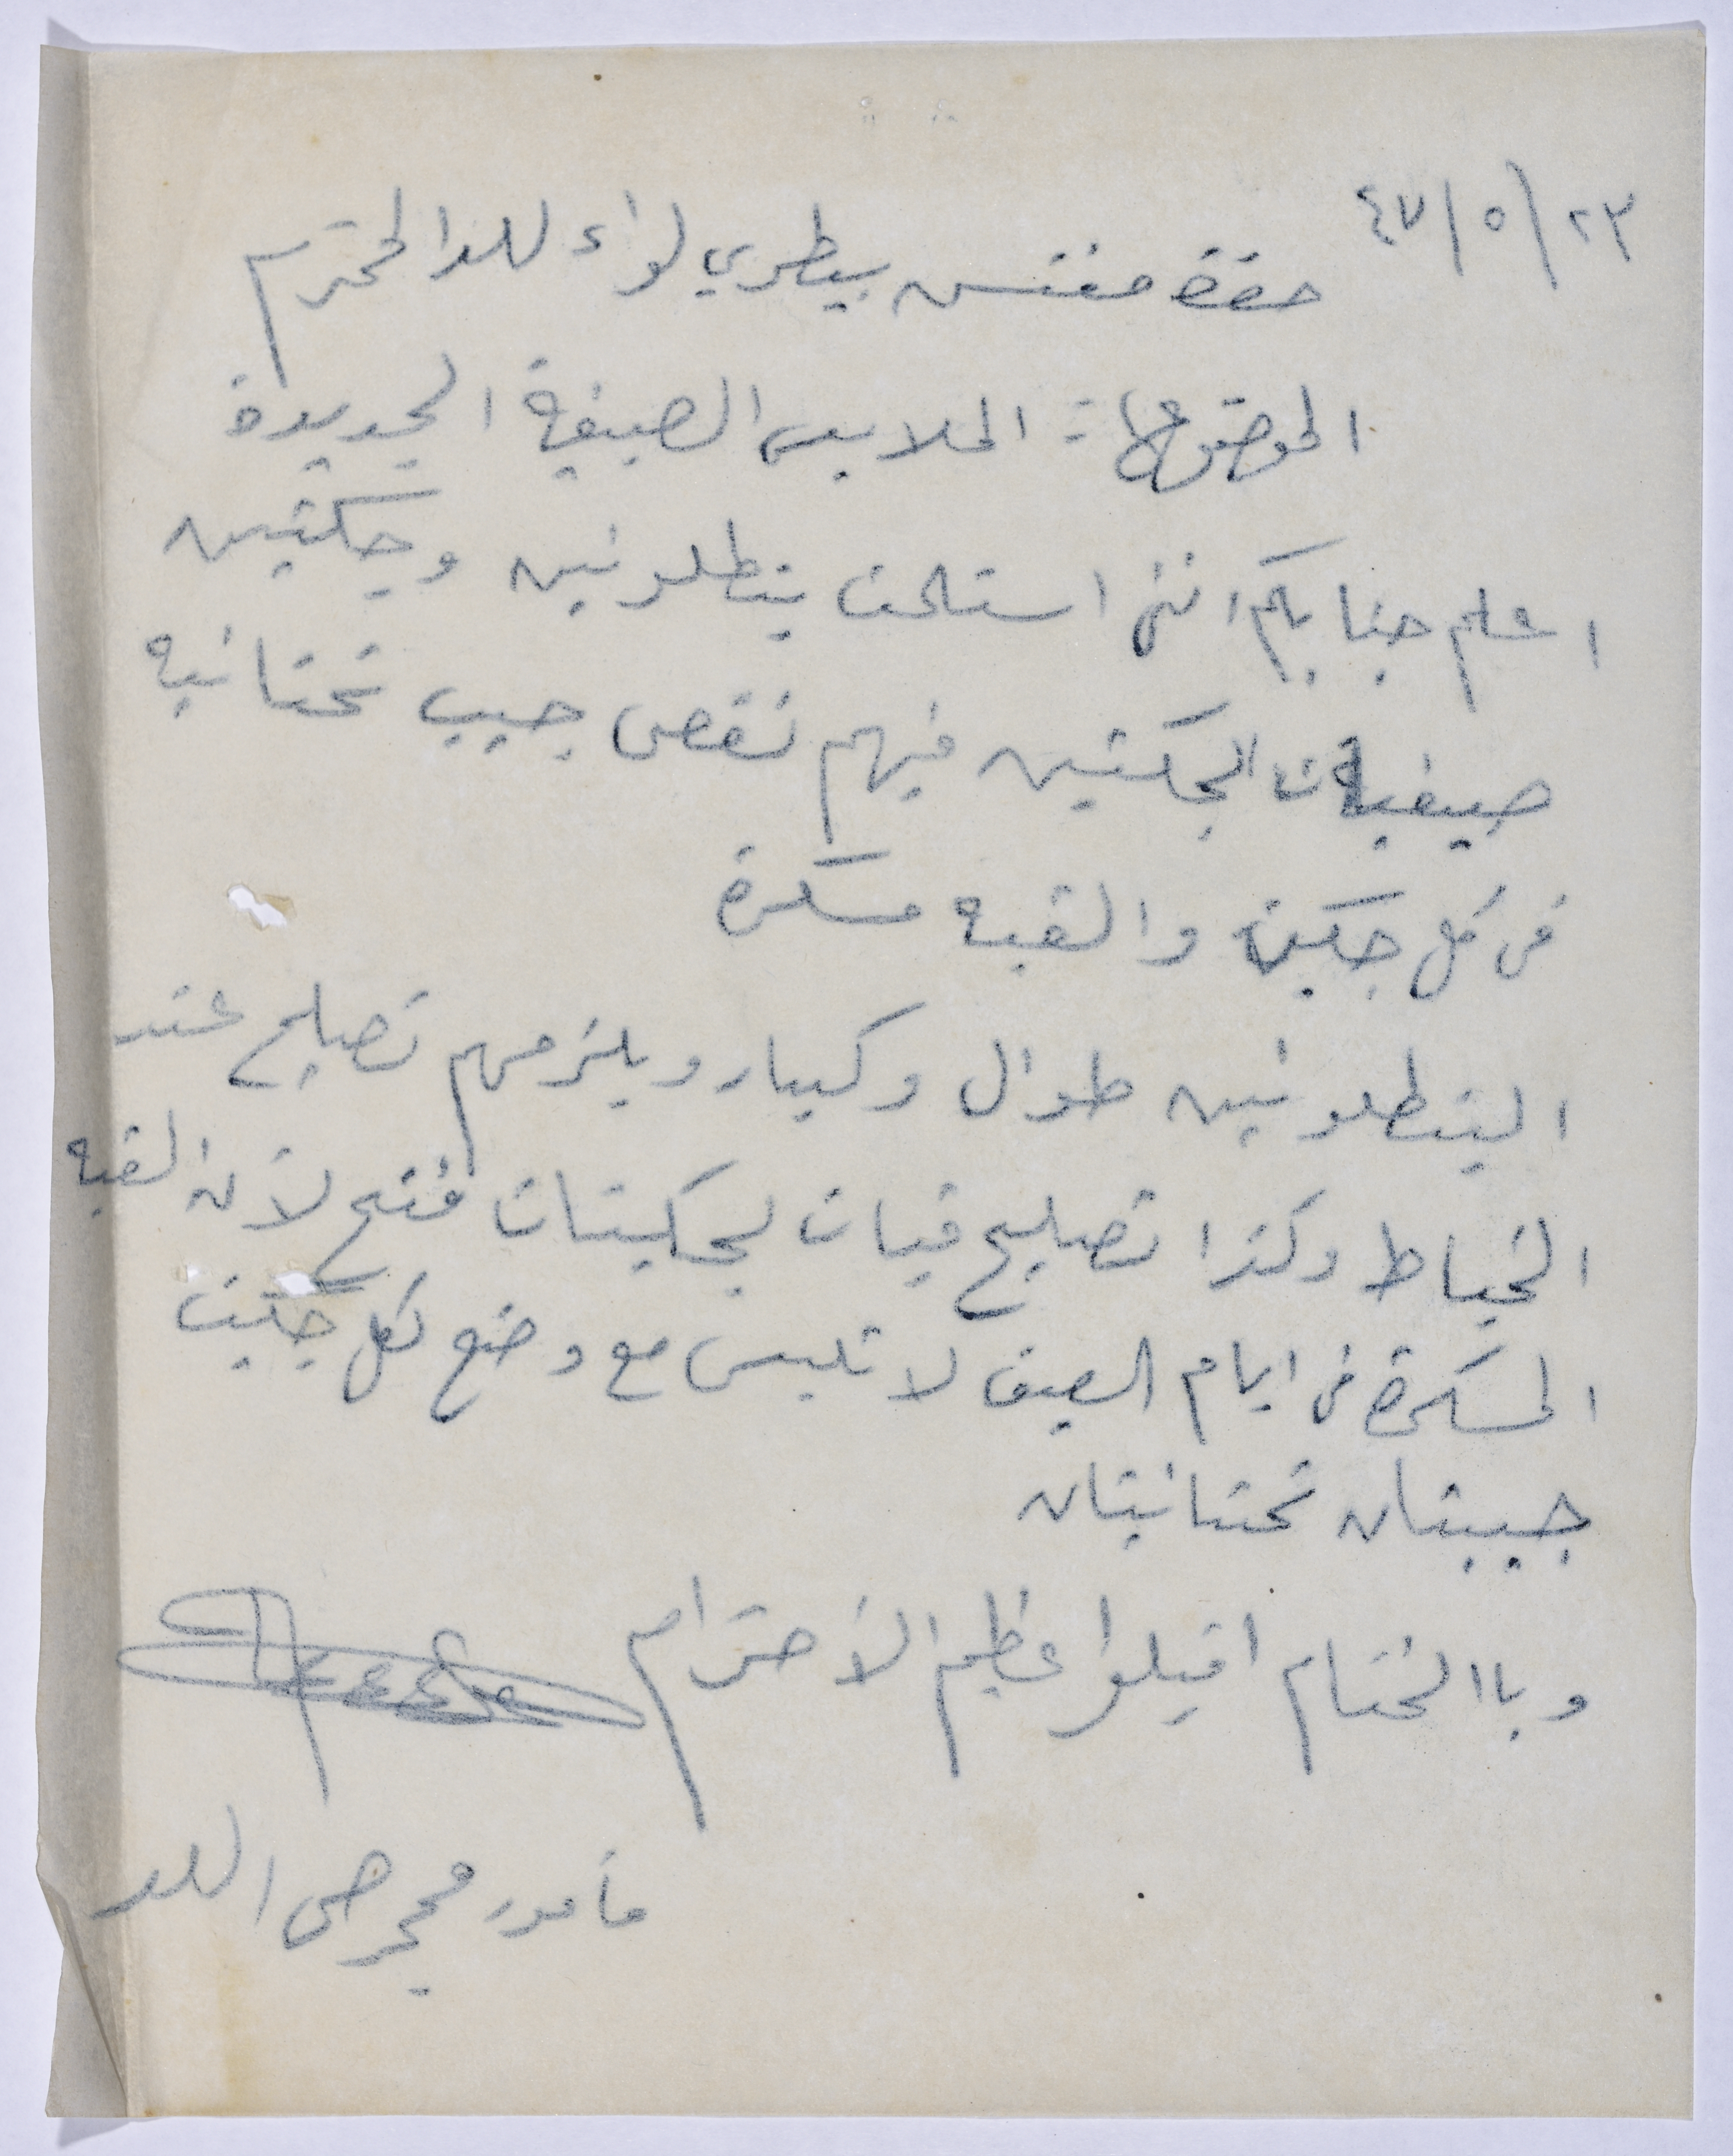 ٢٣/٥/٤٧
حضرة مفتش بيطري لواء اللد المحترم
الموضوع :- الملابس الصيفية الجديدة
اعلم جنابكم انني استلمت بنطلونين وجكتين
صيفيات الجكتين فيهم نقص جيب تحتانيه
في كل جكيت والقبه مسكرة
البنطلونين طوال وكبار ويلزمهم تصليح عند
الخياط وكذا تصليح قبات لجكيتات فتح لأن القبه
المسكرة في ايام الصيف لا تلبس مع وضع لكل جكيت
جيبتان تحتانيتان
وباالختام اقبلوا عظيم الأحترام
مأمور محجر صحي اللد